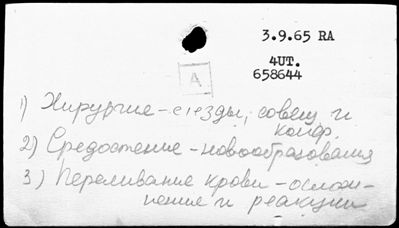 3.9.65 RA
4UT.
658644
A
1) Хирургия - съезды, совещ и
конф.
2) Средостение - новообразования
3) Переливание крови - ослож-
нения и реакции